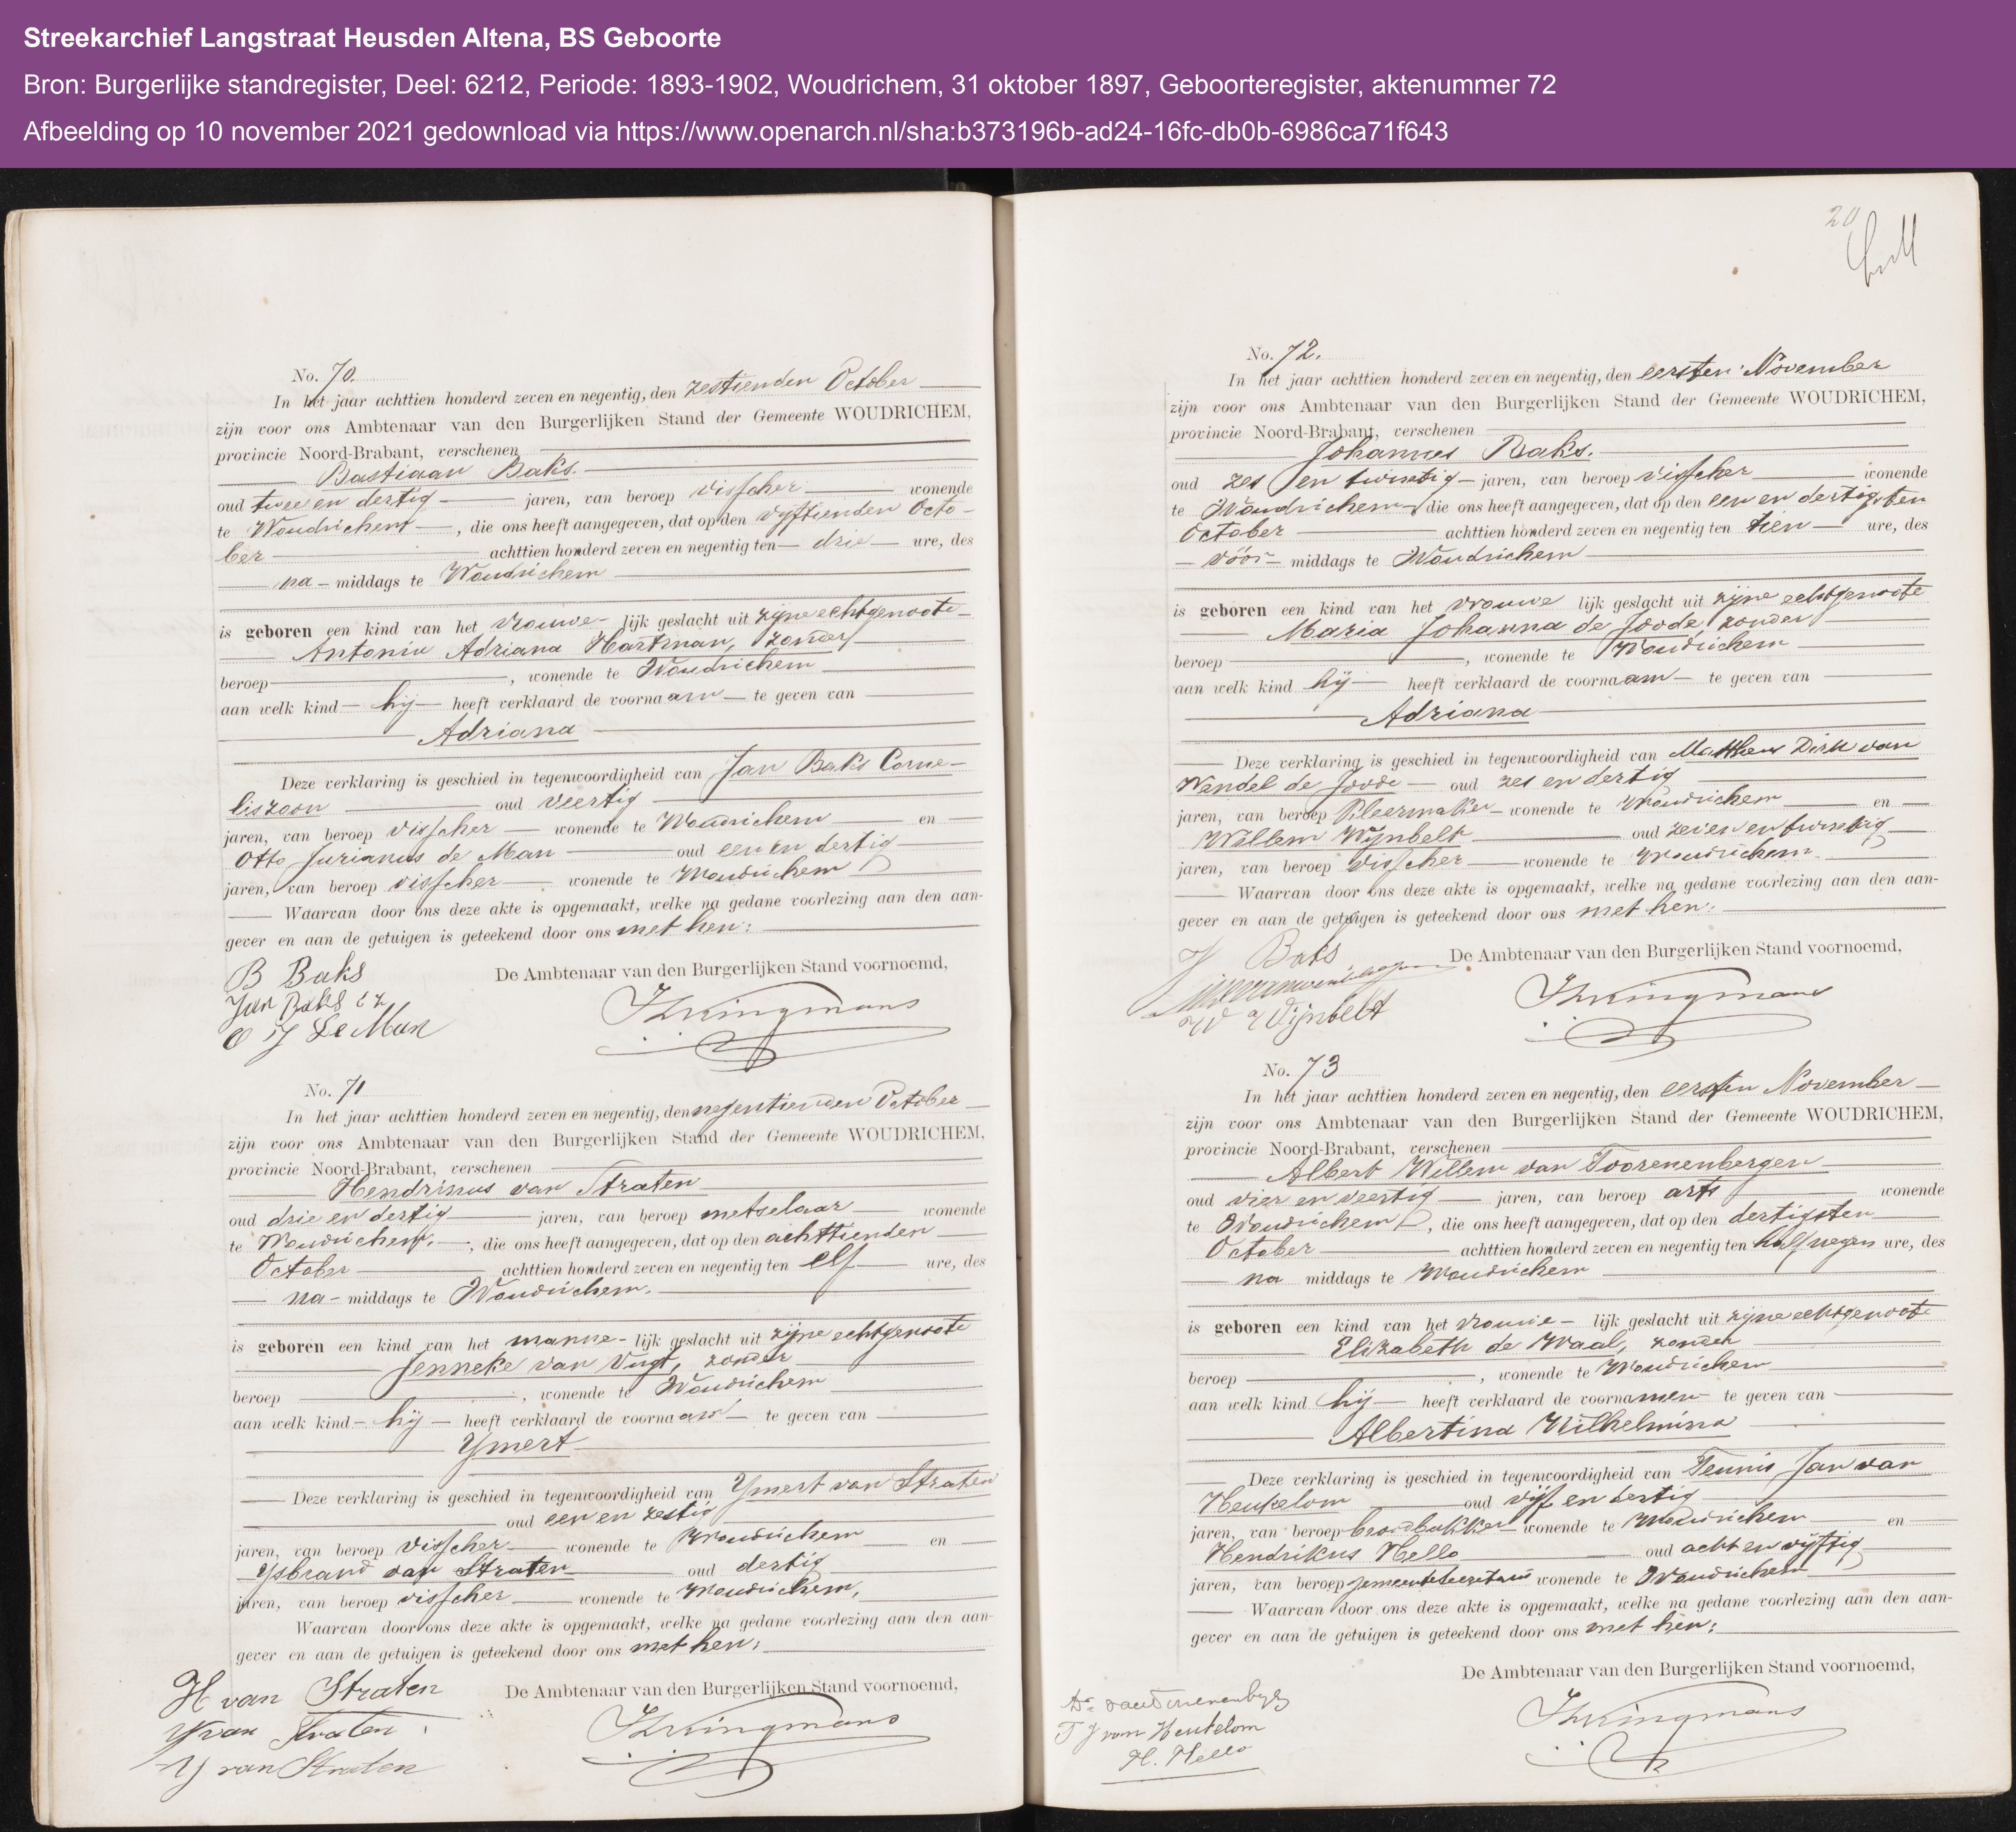 Streekarchief Langstraat Heusden Altena, BS Geboorte
Bron: Burgerlijke standregister, Deel: 6212, Periode: 1893-1902, Woudrichem, 31 oktober 1897, Geboorteregister, aktenummer 72
Afbeelding op 10 november 2021 gedownload via https://www.openarch.nl/sha:b373196b-ad24-16fc-db0b-6986ca71f643
No. 70.
In het jaar achttien honderd zeven en negentig, den zestienden October
zijn voor ons Ambtenaar van den Burgerlijken Stand der Gemeente WOUDRICHEM,
provincie Noord-Brabant, verschenen
Bastiaan Baks.
oud twee en dertig jaren, van beroep visscher wonende
te Woudrichem, die ons heeft aangegeven, dat op den vijftienden Octo-
ber achttien honderd zeven en negentig ten drie ure, des
na-middags te Woudrichem
is geboren een kind van het vrouwe-lijk geslacht uit zijne echtgenoote
Antonia Adriana Hartman, zonder
beroep, wonende te Woudrichem
aan welk kind hij heeft verklaard de voornaam te geven van
Adriana
Deze verklaring is geschied in tegenwoordigheid van Jan Baks Corne-
liszoon oud veertig
jaren, van beroep visscher wonende te Woudrichem en
Otto Jurianus de Man oud een en dertig
jaren, van beroep visscher wonende te Woudrichem
Waarvan door ons deze akte is opgemaakt, welke na gedane voorlezing aan den aan-
gever en aan de getuigen is geteekend door ons met hen:
De Ambtenaar van den Burgerlijken Stand voornoemd,
B Baks
Jan Baks Cz
O J de Man
Kingmans
No. 71
In het jaar achttien honderd zeven en negentig, den negentienden October
zijn voor ons Ambtenaar van den Burgerlijken Stand der Gemeente WOUDRICHEM,
provincie Noord-Brabant, verschenen
Hendrinus van Straten
oud drie en dertig jaren, van beroep metselaar wonende
te Woudrichem, die ons heeft aangegeven, dat op den achttienden
October achttien honderd zeven en negentig ten elf ure, des
na-middags te Woudrichem.
is geboren een kind van het manne-lijk geslacht uit zijne echtgenoote
Jenneke van Vugt, zonder
beroep, wonende te Woudrichem
aan welk kind hij heeft verklaard de voornaam te geven van
Ymert
Deze verklaring is geschied in tegenwoordigheid van Ymert van Straten
oud een en zestig
jaren, van beroep visscher wonende te Woudrichem en
Ysbrand van Straten oud dertig
jaren, van beroep visscher wonende te Woudrichem,
Waarvan door ons deze akte is opgemaakt, welke na gedane voorlezing aan den aan-
gever en aan de getuigen is geteekend door ons met hen:
De Ambtenaar van den Burgerlijken Stand voornoemd,
H van Straten
Y van Straten
Y van Straten
Kingmans
20
No. 72.
In het jaar achttien honderd zeven en negentig, den eersten November
zijn voor ons Ambtenaar van den Burgerlijken Stand der Gemeente WOUDRICHEM,
provincie Noord-Brabant, verschenen
Johannes Baks.
oud zes en twintig jaren, van beroep visscher wonende
te Woudrichem, die ons heeft aangegeven, dat op den een en dertigsten
October achttien honderd zeven en negentig ten tien ure, des
vóór-middags te Woudrichem
is geboren een kind van het vrouwe lijk geslacht uit zijne echtgenoote
Maria Johanna de Joode, zonder
beroep, wonende te Woudrichem
aan welk kind hij heeft verklaard de voornaam te geven van
Adriana
Deze verklaring is geschied in tegenwoordigheid van Mattheus Dirk van
Wendel de Joode oud zes en dertig
jaren, van beroep kleermaker wonende te Woudrichem en
Willem Wijnbelt oud zeven en twintig
jaren, van beroep visscher wonende te Woudrichem
Waarvan door ons deze akte is opgemaakt, welke na gedane voorlezing aan den aan-
gever en aan de getuigen is geteekend door ons met hen:
De Ambtenaar van den Burgerlijken Stand voornoemd,
J Baks
W Wijnbelt
Kingmans
No. 73
In het jaar achttien honderd zeven en negentig, den eersten November
zijn voor ons Ambtenaar van den Burgerlijken Stand der Gemeente WOUDRICHEM,
provincie Noord-Brabant, verschenen
Albert Willem van Toorenenbergen
oud vier en veertig jaren, van beroep arts wonende
te Woudrichem, die ons heeft aangegeven, dat op den dertigsten
October achttien honderd zeven en negentig ten half negen ure, des
na middags te Woudrichem
is geboren een kind van het vrouwe-lijk geslacht uit zijne echtgenoote
Elizabeth de Waal, zonder
beroep, wonende te Woudrichem
aan welk kind hij heeft verklaard de voornamen te geven van
Albertina Wilhelmina
Deze verklaring is geschied in tegenwoordigheid van Teunis Jan van
Heukelom oud vijf en dertig
jaren, van beroep broodbakker wonende te Woudrichem en
Hendrikus Hello oud acht en vijftig
jaren, van beroep gemeentesecretaris wonende te Woudrichem
Waarvan door ons deze akte is opgemaakt, welke na gedane voorlezing aan den aan-
gever en aan de getuigen is geteekend door ons met hen:
De Ambtenaar van den Burgerlijken Stand voornoemd,
T J van Heukelom
H. Hello
Kingmans